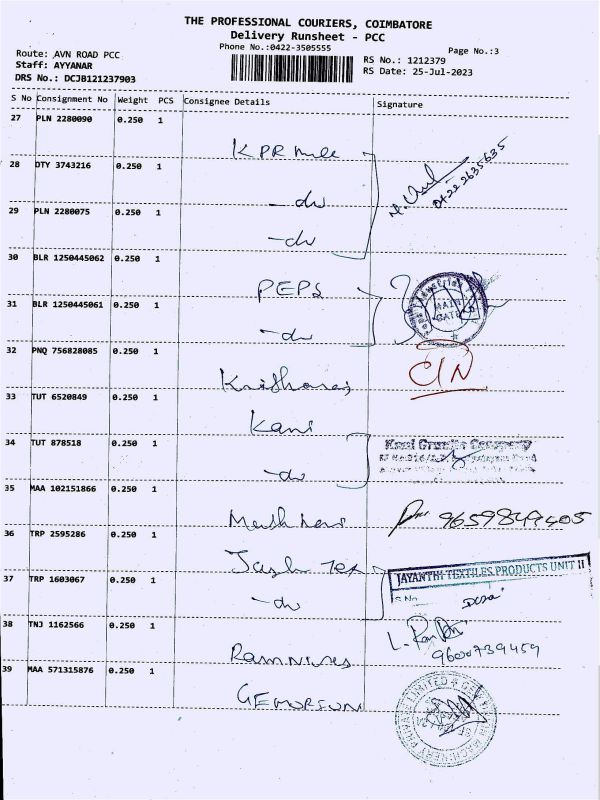 THE PROFESSIONAL COURIERS, COIMBATORE
Delivery Runsheet - PCC
Phone No.:0422-3505555
Page No.:3
Route: AVN ROAD PCC
Staff: AYYANAR
DRS No.: DCJB121237903
RS No.: 1212379
RS Date: 25-Jul-2023
S No Consignment No Weight PCS Consignee Details Signature
27 PLN 2280090 0.250 1
KPR mill
28 DTY 3743216 0.250 1
-do
0422 2635635
29 PLN 2280075 0.250 1
-do
30 BLR 1250445062 0.250 1
PEPS
MAIN GATE
31 BLR 1250445061 0.250 1
-do
32 PNQ 756828085 0.250 1
Krithoraj
33 TUT 6520849 0.250 1
Kani
34 TUT 878518 0.250 1
-do
Kani Granite Company
35 MAA 102151866 0.250 1
9659849405
36 TRP 2595286 0.250 1
37 TRP 1603067 0.250 1
-do
JAYANTHI TEXTILES PRODUCTS UNIT II
S.No
38 TNJ 1162566 0.250 1
9600739459
39 MAA 571315876 0.250 1
MACHINERY PRIVATE LIMITED